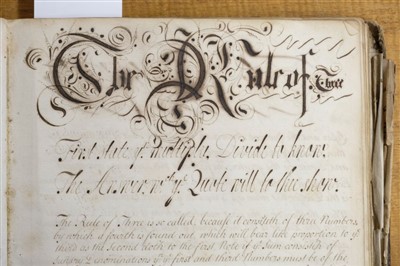 The Rule of Three
First state yᵉ multiply, Divide to know:
The Answer, wᵗ yᵉ Quote will to thee show.
The Rule of Three is so called, because it consisteth of three Numbers
by which a fourth is found out, which will bear like proportion to yᵉ
third as the Second doth to the first Note if yᵉ Sum consists of
Sundry Denominations yᵉ yᵉ first and third Numbers must be of the